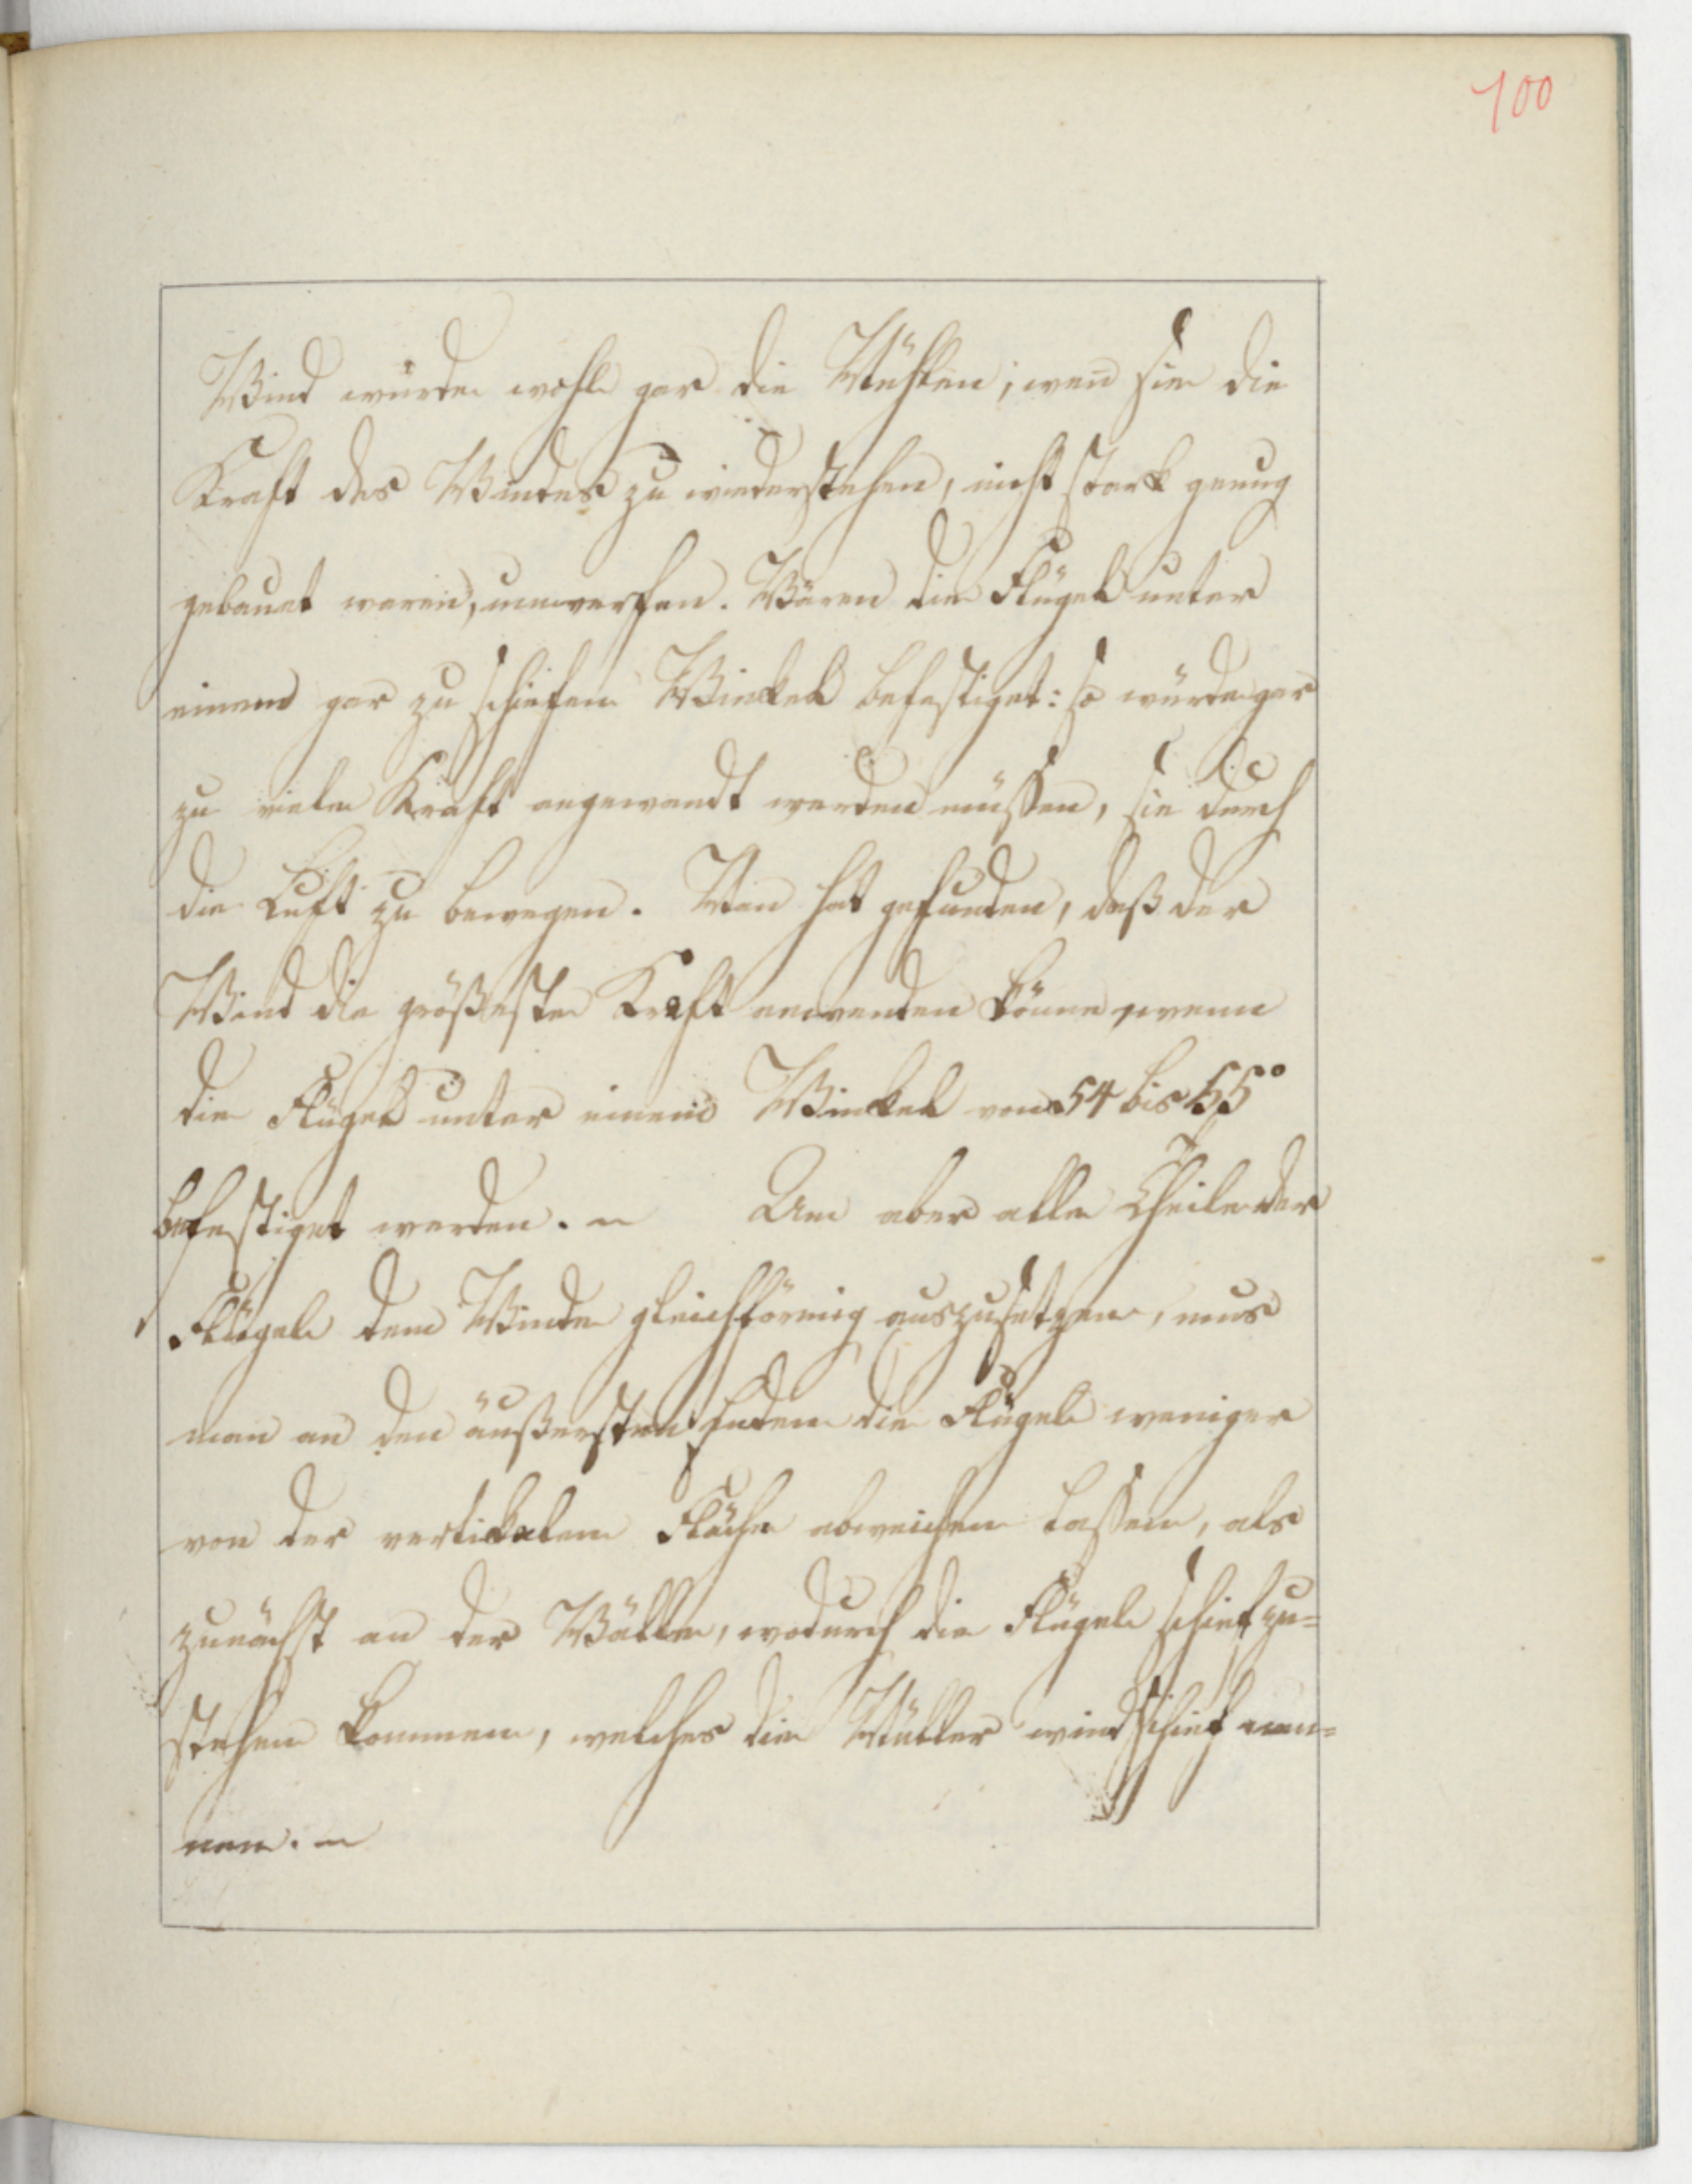 100
Wind würde wohl gar die Mühlen, wen̄ sie die
Kraft des Windes zu wiederstehen, nicht stark genug
gebauet waren, umwerfen. Wären die Flügel unter
einem gar zu schiefen Winkel befestiget: so würde gar
zu viele Kraft angewandt werden müssen, sie durch
die Luft zu bewegen. Man hat gefunden, daß der
Wind die größeste Kraft anwenden könne, wenn
die Flügel unter einem Winkel von 54 bis 55°
befestiget werden. – Um aber alle Theile der
Flügel dem Winde gleichförmig auszusetzen, mus
man an den äußersten Enden die Flügel weniger
von der vertikalen Fläche abweichen lassen, als
zunächst an der Wälle, wodurch die Flügel schief zu=
stehen kommen, welches die Müller windschief nen=
nen. –